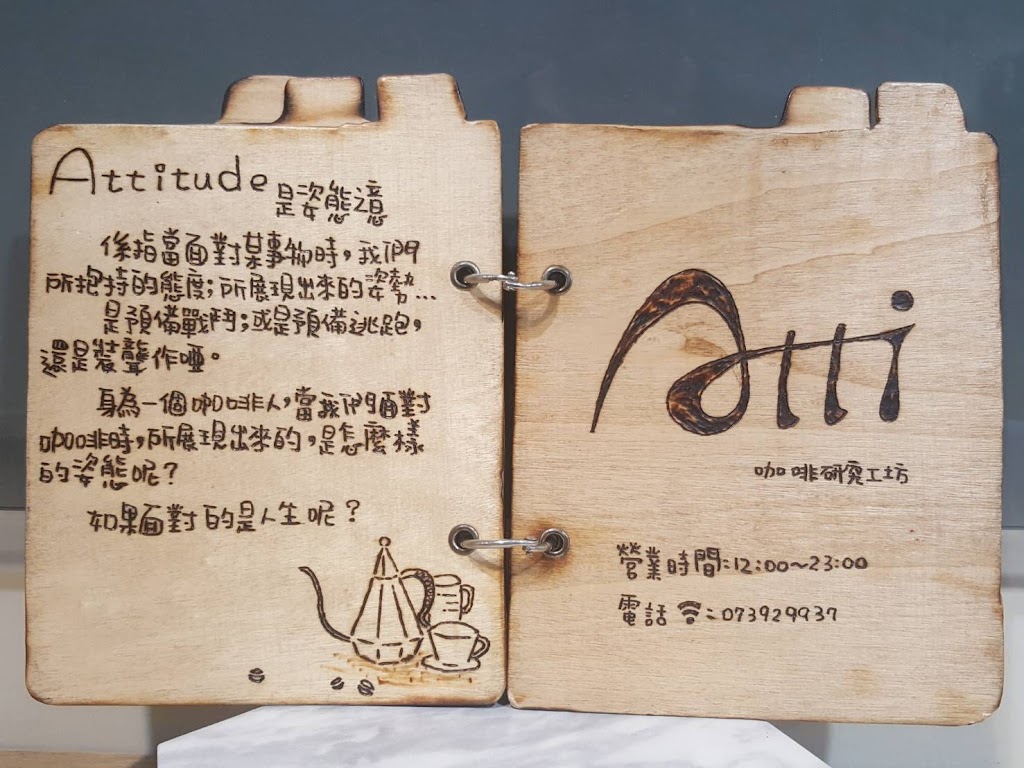 Attitude 是姿態之意
係指當面對某事物時，我們
所抱持的態度；所展現出來的姿勢…
是預備戰鬥；或是預備逃跑，
還是裝聾作啞。
身為一個咖啡人，當我們面對
咖啡時，所展現出來的，是怎麼樣
的姿態呢？
如果面對的是人生呢？
Atti
咖啡研究工坊
營業時間：12:00~23:00
電話：073929937